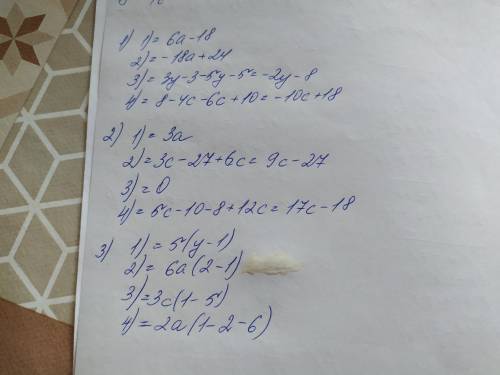 1) 1) = 6a - 18
2) = -18a + 24
3) = 3y - 3 - 5y - 5 = -2y - 8
4) = 8 - 4c - 6c + 10 = -10c + 18
2) 1) = 3a
2) = 3c - 27 + 6c = 9c - 27
3) = 0
4) = 5c - 10 - 8 + 12c = 17c - 18
3) 1) = 5(y - 1)
2) = 6a(2 - 1)
3) = 3c(1 - 5)
4) = 2a(1 - 2 - 6)